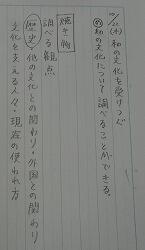 10/1(木)和の文化を受けつぐ
め和の文化について調べることができる。
焼き物
調べる観点
歴史 他の文化との関わり・外国との関わり
文化を支える人々・現在の使われ方